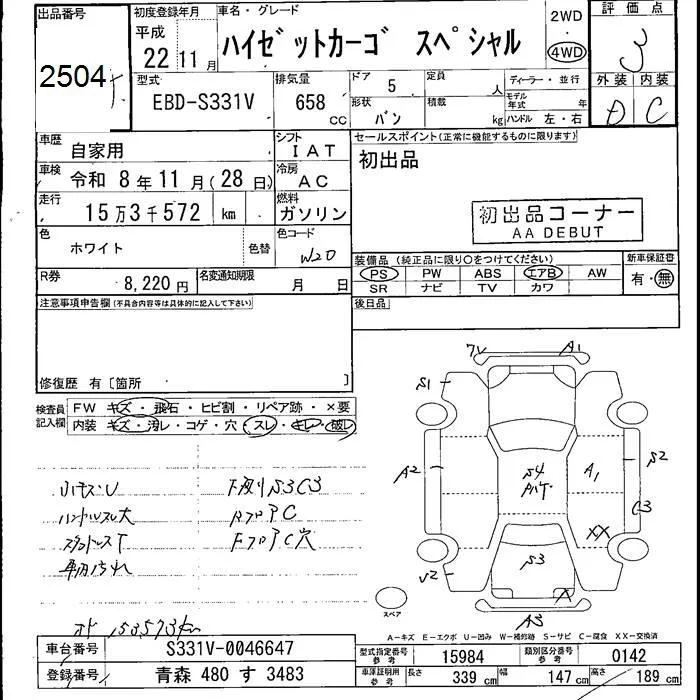 出品番号
2504
初度登録年月
平成
22 11月
車名・グレード
ハイゼットカーゴ スペシャル
2WD
4WD
評価点
3
外装 内装
D C
型式
EBD-S331V
排気量
658 CC
ドア 5
形状 バン
定員 人
積載 kg
ディーラー・並行
モデル年式 年
ハンドル 左・右
車歴
自家用
シフト
IAT
車検
令和 8年11月(28日)
冷房
AC
走行
15万3千572 km
燃料
ガソリン
色
ホワイト
色替
色コード
W20
R券
8,220円
名変通知期限
月 日
セールスポイント(正常に機能するものに限ります)
初出品
初出品コーナー
AA DEBUT
装備品(純正品に限り○をつけてください)
PS PW ABS エアB AW
SR ナビ TV カワ
新車保証書
有・無
後日品
注意事項申告欄(不具合内容等は具体的に記入して下さい)
修復歴 有〔箇所 〕
検査員記入欄
FW キズ・飛石・ヒビ割・リペア跡・×要
内装 キズ・汚レ・コゲ・穴・スレ・キレ・破レ
ハンドルスレ大
下廻りS3C3
FフロアC穴
車内汚れ
153573km
A1
S1
A2
S4
A1
S2
C3
XX
S3
V2
X
A3
スペア
A-キズ E-エクボ U-凹み W-補修跡 S-サビ C-腐食 XX-交換済
車台番号
S331V-0046647
登録番号
青森 480 す 3483
型式指定番号 参考
15984
類別区分番号 参考
0142
車庫証明用 参考
長さ 339 cm
幅 147 cm
高さ 189 cm